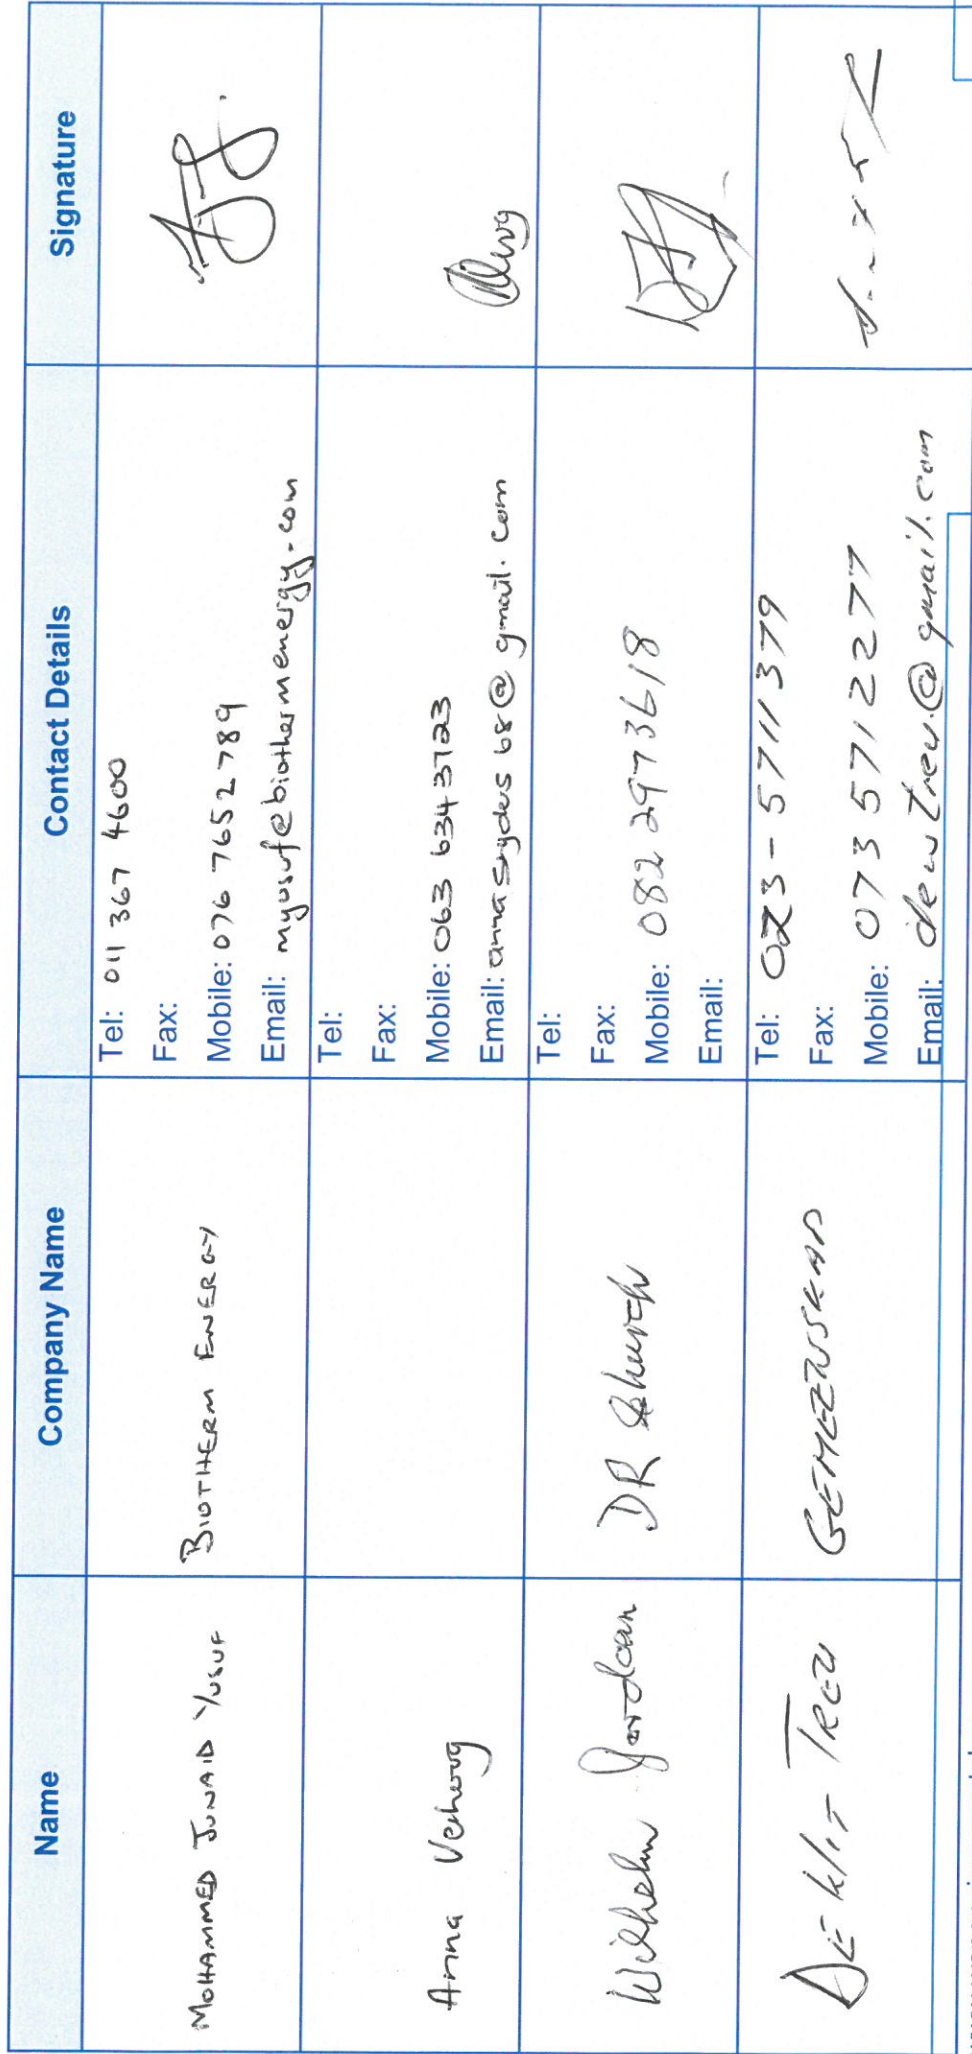 Name Company Name Contact Details Signature
MOHAMMED JUNAID YUSUF
BIOTHERM ENERGY
Tel: 011 367 4600
Fax:
Mobile: 076 765 2789
Email: myusuf@biothermenergy.com
Anna
Tel:
Fax:
Mobile: 063 634 3723
Email: annasnydes68@gmail.com
Wilhelm Jordaan
DR Church
Tel:
Fax:
Mobile: 082 297 3618
Email:
DE KLIT TREU
Tel: 023-5711379
Fax:
Mobile: 073 571 2277
Email: